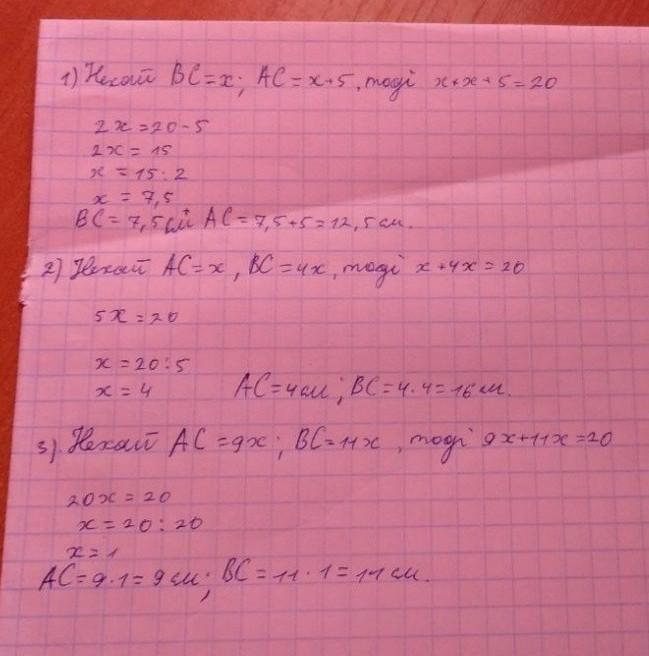 1) Нехай BC = x; AC = x+5, тоді x+x+5=20
2x = 20-5
2x = 15
x = 15:2
x = 7,5
BC = 7,5 см AC = 7,5+5=12,5 см.
2) Нехай AC = x, BC = 4x, тоді x+4x=20
5x = 20
x = 20:5
x = 4 AC=4 см; BC=4·4=16 см.
3). Нехай AC = 9x; BC = 11x, тоді 9x+11x=20
20x = 20
x = 20:20
x = 1
AC = 9·1 = 9 см; BC = 11·1 = 11 см.